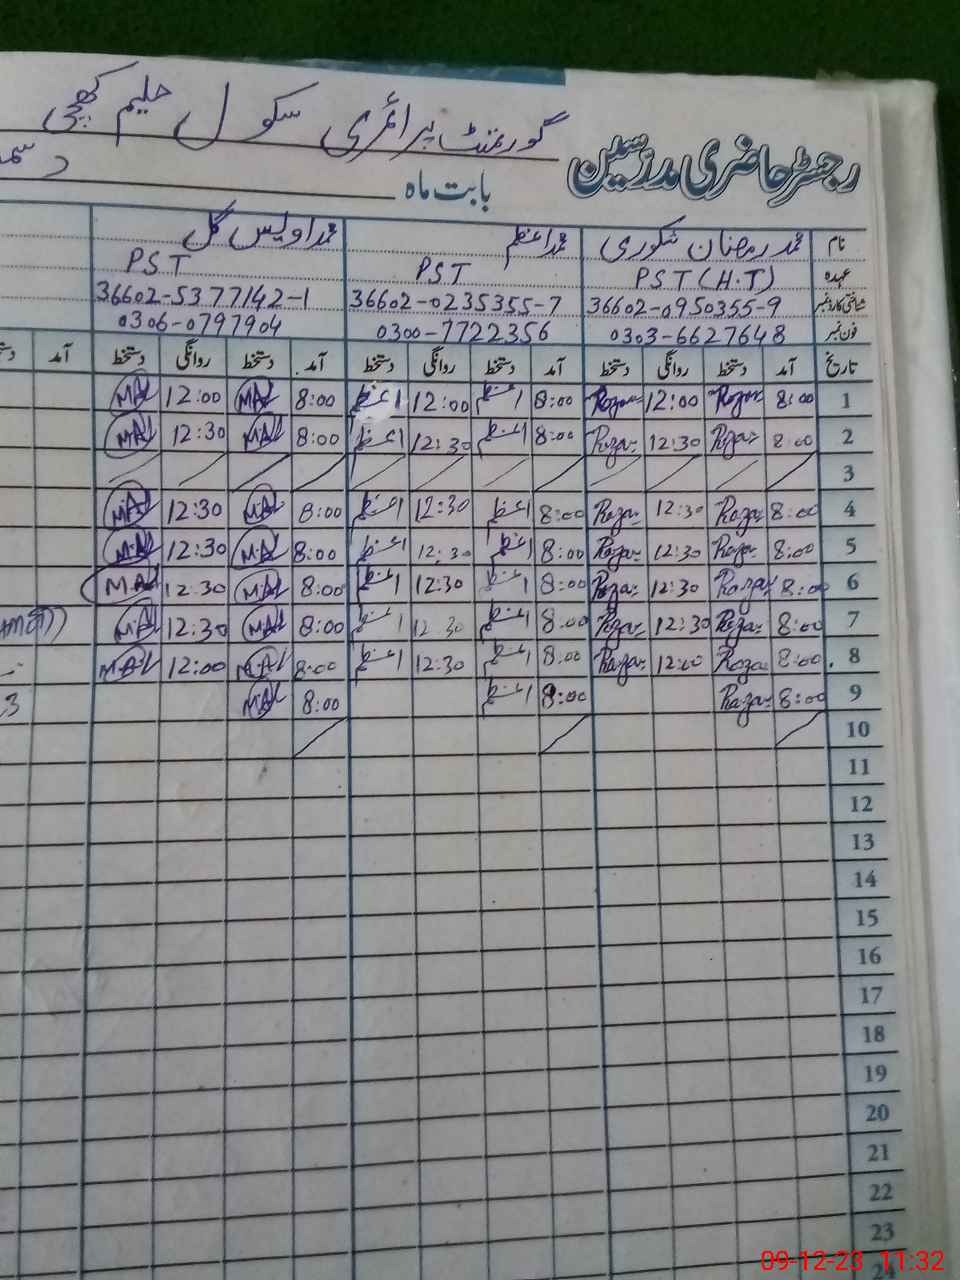 گورنمنٹ پرائمری سکول حلیم کھچی
رجسٹر حاضری مدرسین
بابت ماہ
نام محمد رمضان شکوری محمد اعظم محمد اویس گل
عہدہ PST (H.T) PST PST
شناختی کارڈ نمبر 36602-0950355-9 36602-0235355-7 36602-5377142-1
فون نمبر 0303-6627648 0300-7722356 0306-0797904
تاریخ آمد دستخط روانگی دستخط آمد دستخط روانگی دستخط آمد دستخط روانگی دستخط آمد
1 8:00 Roza 12:00 Roza 8:00 اعظم 12:00 اعظم 8:00 MAL 12:00 MAL
2 8:00 Roza 12:30 Roza 8:00 اعظم 12:30 اعظم 8:00 MAL 12:30 MAL
3
4 8:00 Roza 12:30 Roza 8:00 اعظم 12:30 اعظم 8:00 MAL 12:30 MAL
5 8:00 Roza 12:30 Roza 8:00 اعظم 12:30 اعظم 8:00 MAL 12:30 MAL
6 8:00 Roza 12:30 Roza 8:00 اعظم 12:30 اعظم 8:00 MAL 12:30 MAL
7 8:00 Roza 12:30 Roza 8:00 اعظم 12:30 اعظم 8:00 MAL 12:30 MAL
8 8:00 Roza 12:00 Roza 8:00 اعظم 12:30 اعظم 8:00 MAL 12:00 MAL
9 8:00 Roza 8:00 اعظم 8:00 MAL
10
11
12
13
14
15
16
17
18
19
20
21
22
23
24
09-12-23 11:32